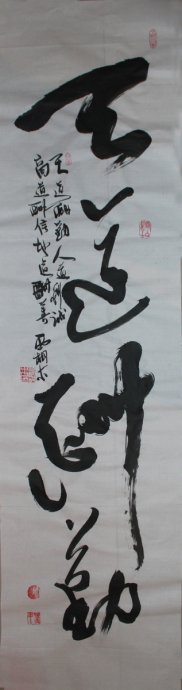 天道酬勤
天道酬勤人道酬诚
商道酬信地道酬善